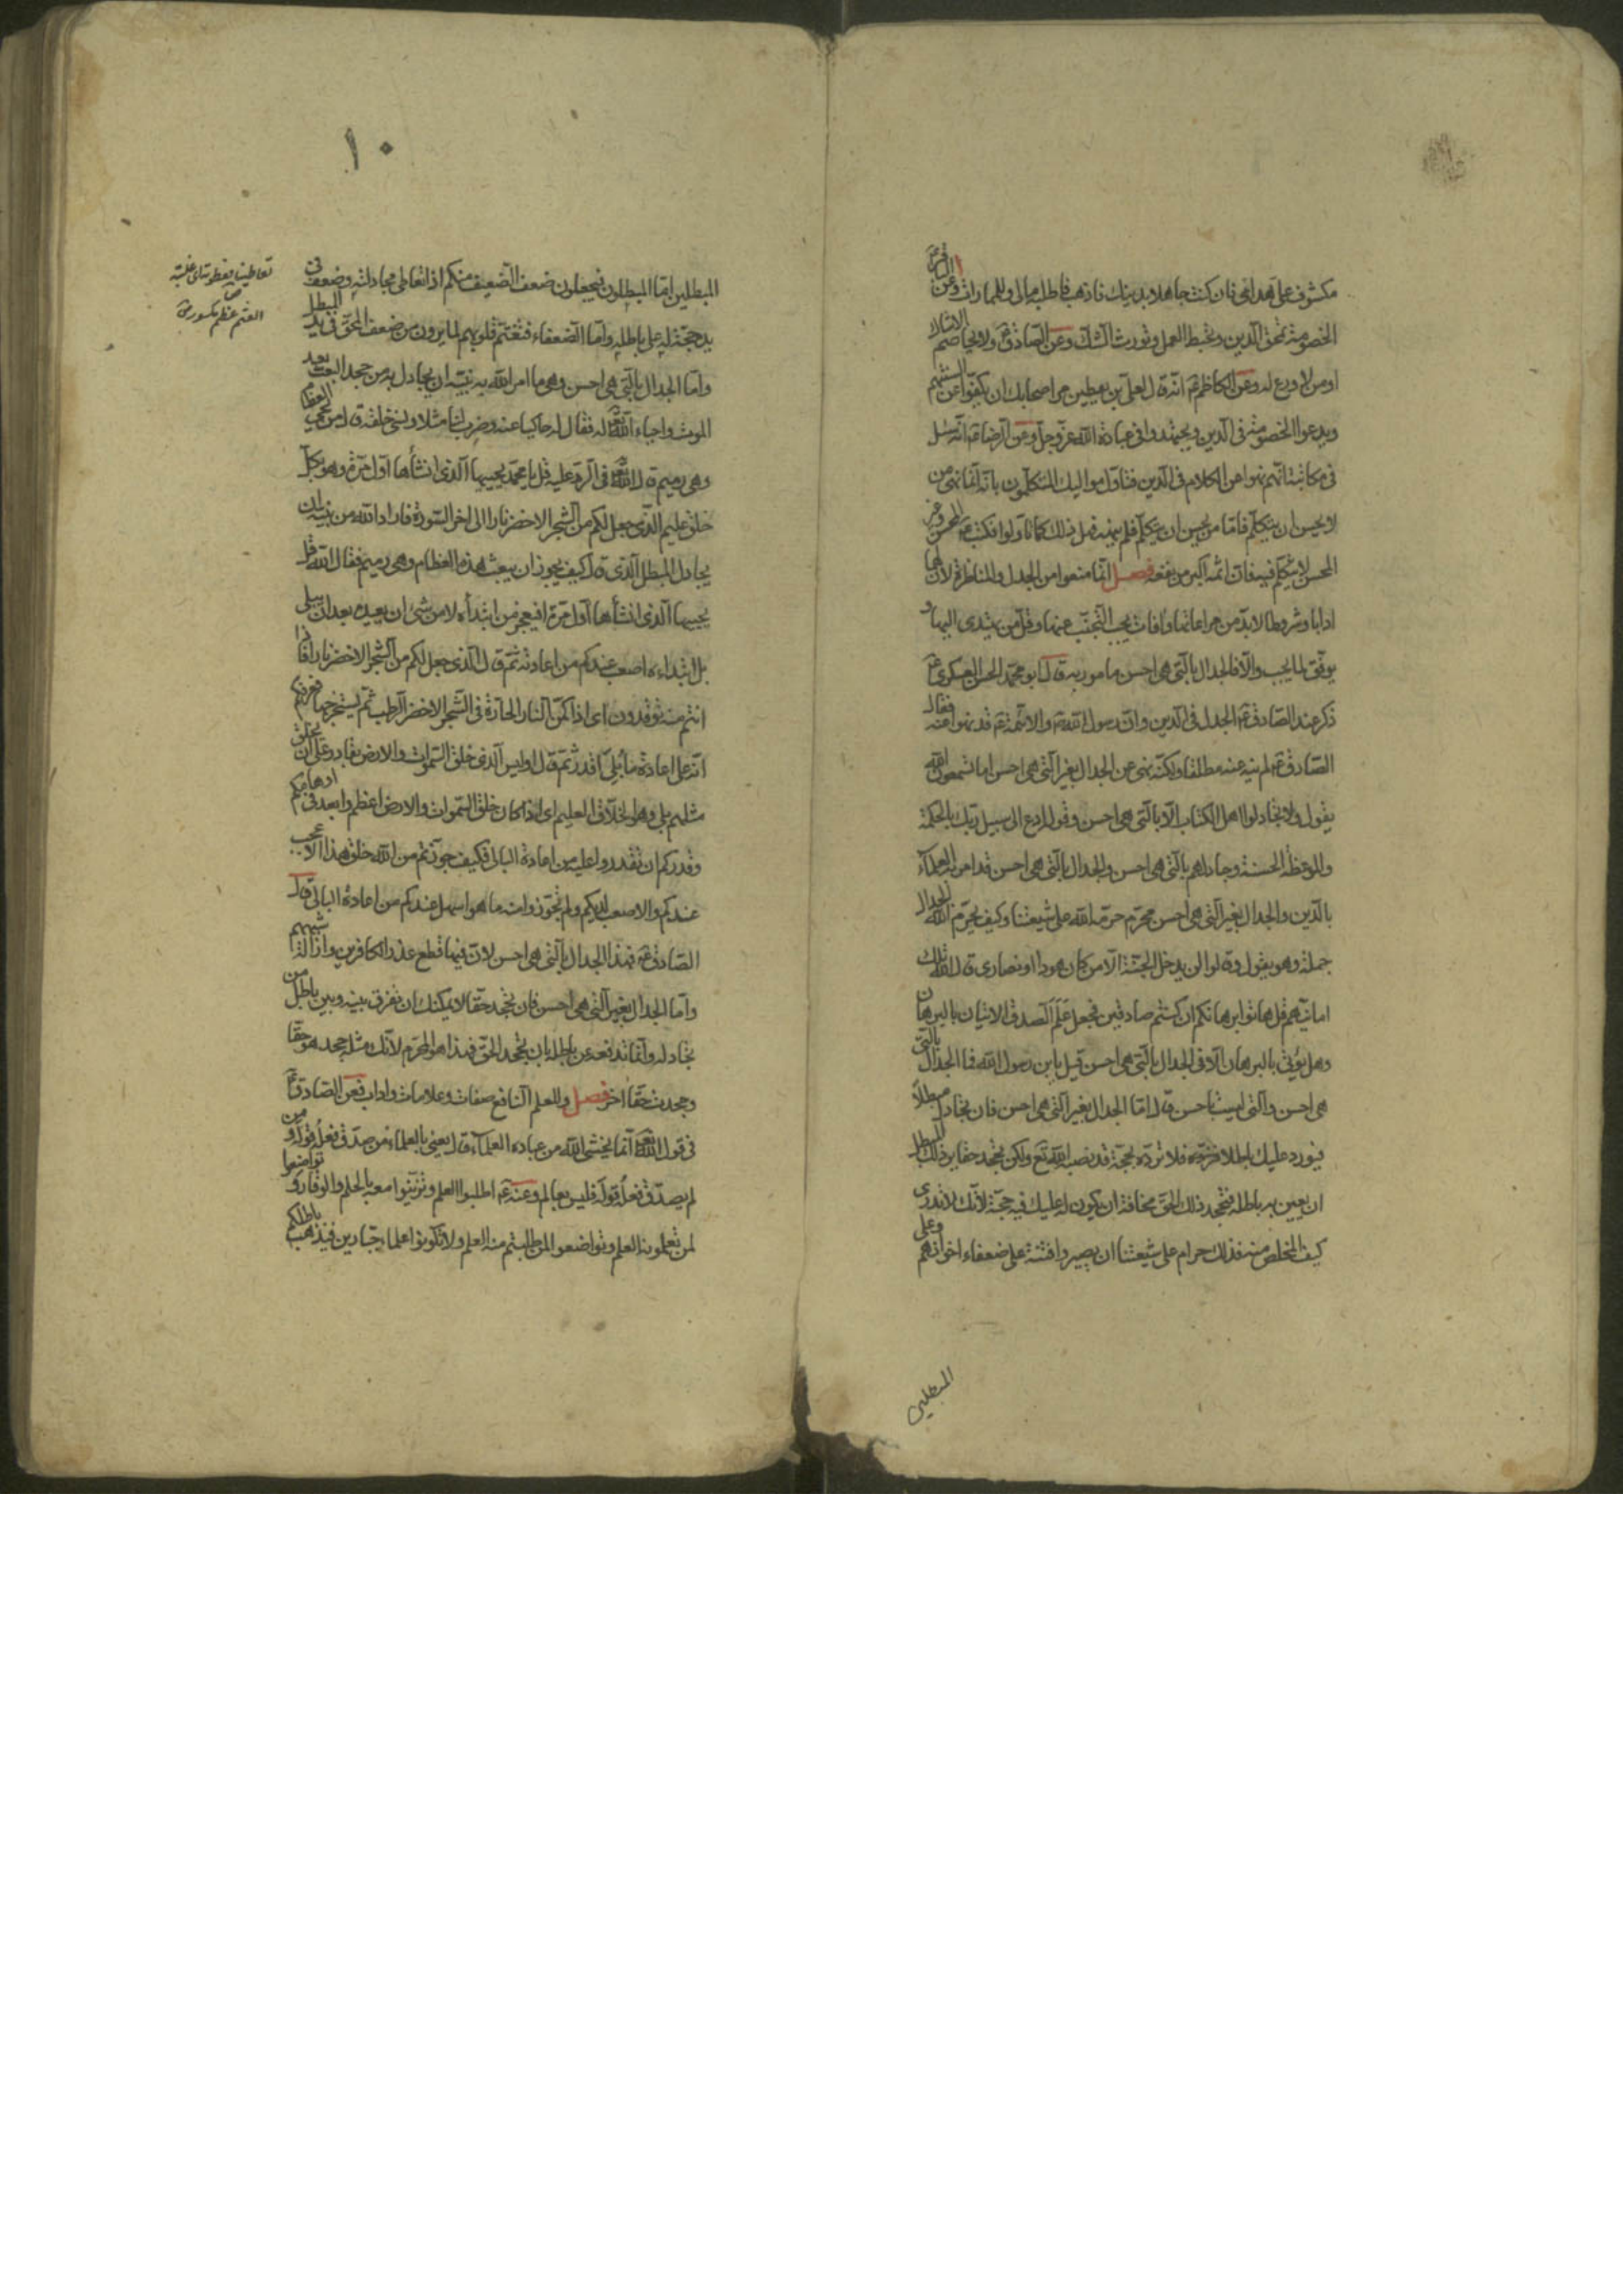 مكشوف على هداى فان كنت جاهلا بدينك فاذهب فاطلبه مالى وللمماراة وعن الباقر ع
الخصومة تمحق الدين وتحبط العمل وتورث الشك وعن الصادق ع ولا يخاصم الا شاك
او من لا ورع له وعن الكاظم ع انه قال لعلى بن يقطين مر اصحابك ان يكفوا عن السنتهم
ويدعوا الخصومة فى الدين ويجتهدوا فى عبادة الله عز وجل وعن الرضا ع انه سئل
فى مكاتبة انهم نهوا عن الكلام فى الدين فتاول مواليك المتكلمون بانه انما نهى من
لا يحسن ان يتكلم فاما من يحسن ان يتكلم فلم ينهه فهل ذلك كما تاولوا فكتب ع المحسن وغير
المحسن لا يتكلم فيه فان اثمه اكبر من نفعه فصل انما منعوا من الجدل والمناظرة لان لهما
ادابا وشروطا لا بد من مراعاتها وافات يجب التجنب عنها وقل من يهتدى اليها و
يوفق لما يجب والا فالجدال بالتى هى احسن مامور به قال ابو محمد الحسن العسكرى ع
ذكر عند الصادق ع الجدل فى الدين وان رسول الله ص والائمة ع قد نهوا عنه فقال
الصادق ع لم ينه عنه مطلقا ولكنه نهى عن الجدال بغير التى هى احسن اما تسمعون الله
يقول ولا تجادلوا اهل الكتاب الا بالتى هى احسن وقوله ادع الى سبيل ربك بالحكمة
والموعظة الحسنة وجادلهم بالتى هى احسن والجدال بالتى هى احسن قد امر به العلماء
بالدين والجدال بغير التى هى احسن محرم حرمه الله على شيعتنا وكيف يحرم الله الجدال
جملة وهو يقول وقالوا لن يدخل الجنة الا من كان هودا او نصارى قال الله تلك
امانيهم قل هاتوا برهانكم ان كنتم صادقين فجعل علم الصدق الاتيان بالبرهان
وهل يؤتى بالبرهان الا فى الجدال بالتى هى احسن قيل يابن رسول الله فما الجدال بالتى
هى احسن والتى ليست باحسن قال اما الجدال بغير التى هى احسن فان تجادل مبطلا
فيورد عليك باطلا فلا ترده بحجة قد نصبها الله تع ولكن تجحد حقا يريد ذلك المبطل
ان يعين به باطله فتجحد ذلك الحق مخافة ان يكون له عليك فيه حجة لانك لا تدرى
كيف المخلص منه فذلك حرام على شيعتنا ان يصيروا فتنة على ضعفاء اخوانهم وعلى
المبطلين
١٠
المبطلين اما المبطلون فيجعلون ضعف الضعيف منكم اذا تعاطى مجادلته وضعف فى
يده حجة له على باطله واما الضعفاء فتغتم قلوبهم لما يرون من ضعف المحق فى يد المبطل
واما الجدال بالتى هى احسن وهى ما امر الله به نبيه ان يجادل به من جحد البعث بعد
الموت واحياء الله له فقال له حاكيا عنه وضرب لنا مثلا ونسى خلقه قال من يحيى العظام
وهى رميم قال الله تع فى الرد عليه قل يا محمد يحييها الذى انشأها اول مرة وهو بكل
خلق عليم الذى جعل لكم من الشجر الاخضر نارا الى اخر السورة فاراد الله من نبيه ان
يجادل المبطل الذى قال كيف يجوز ان يبعث هذه العظام وهى رميم فقال الله قل
يحييها الذى انشأها اول مرة افيعجز من ابتدأه لا من شئ ان يعيده بعد ان يبلى
بل ابتداءه اصعب عندكم من اعادته ثم قال الذى جعل لكم من الشجر الاخضر نارا فاذا
انتم منه توقدون اى اذا كمن النار الحارة فى الشجر الاخضر الرطب ثم يستخرجها فعرفكم
انه على اعادة ما بلى اقدر ثم قال اوليس الذى خلق السموات والارض بقادر على ان يخلق
مثلهم بلى وهو الخلاق العليم اى اذا كان خلق السموات والارض اعظم وابعد فى اوهامكم
وقدركم ان تقدروا عليه من اعادة البالى فكيف جوزتم من الله خلق هذا الاعجب
عندكم والاصعب لديكم ولم تجوزوا منه ما هو اسهل عندكم من اعادة البالى قال
الصادق ع فهذا الجدال بالتى هى احسن لان فيها قطع عذر الكافرين وازالة شبههم
واما الجدال بغير التى هى احسن فان تجحد حقا لا يمكنك ان تفرق بينه وبين باطل من
تجادله وانما تدفعه عن باطله بان تجحد الحق فهذا هو المحرم لانك مثله جحد هو حقا
وجحدت حقا اخر فصل وللعلم النافع صفات وعلامات واداب فعن الصادق ع
فى قول الله تع انما يخشى الله من عباده العلماء قال يعنى بالعلماء من صدق فعله قوله ومن
لم يصدق فعله قوله فليس بعالم وعنه ع اطلبوا العلم وتزينوا معه بالحلم والوقار وتواضعوا
لمن تعلمونه العلم وتواضعوا لمن طلبتم منه العلم ولا تكونوا علماء جبارين فيذهب باطلكم